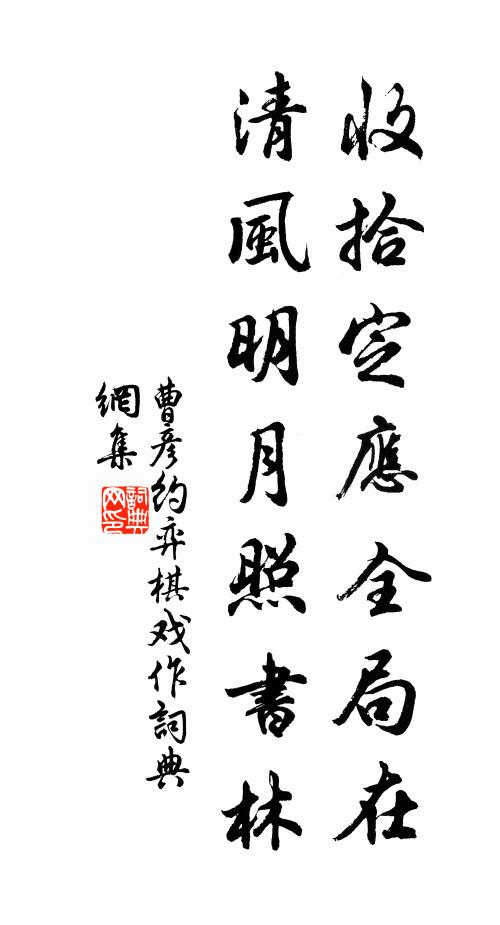 收拾定應全局在
清風明月照書林
曹彥約弈棋戏作詞典
網集
詞典網印